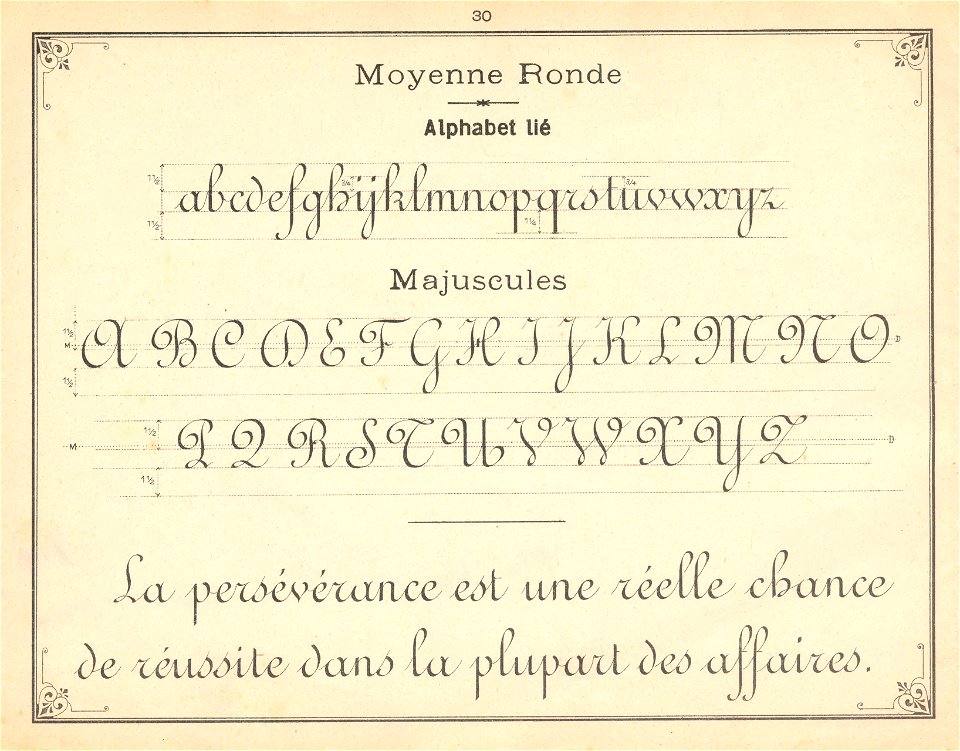 30
Moyenne Ronde
Alphabet lié
1 1/2 3/4 3/4
abcdefghijklmnopqrstuvwxyz
1 1/2 1 1/4
Majuscules
1 1/2
M A B C D E F G H I J K L M N O D
1 1/2
1 1/2
M P Q R S T U V W X Y Z D
1 1/2
La persévérance est une réelle chance
de réussite dans la plupart des affaires.